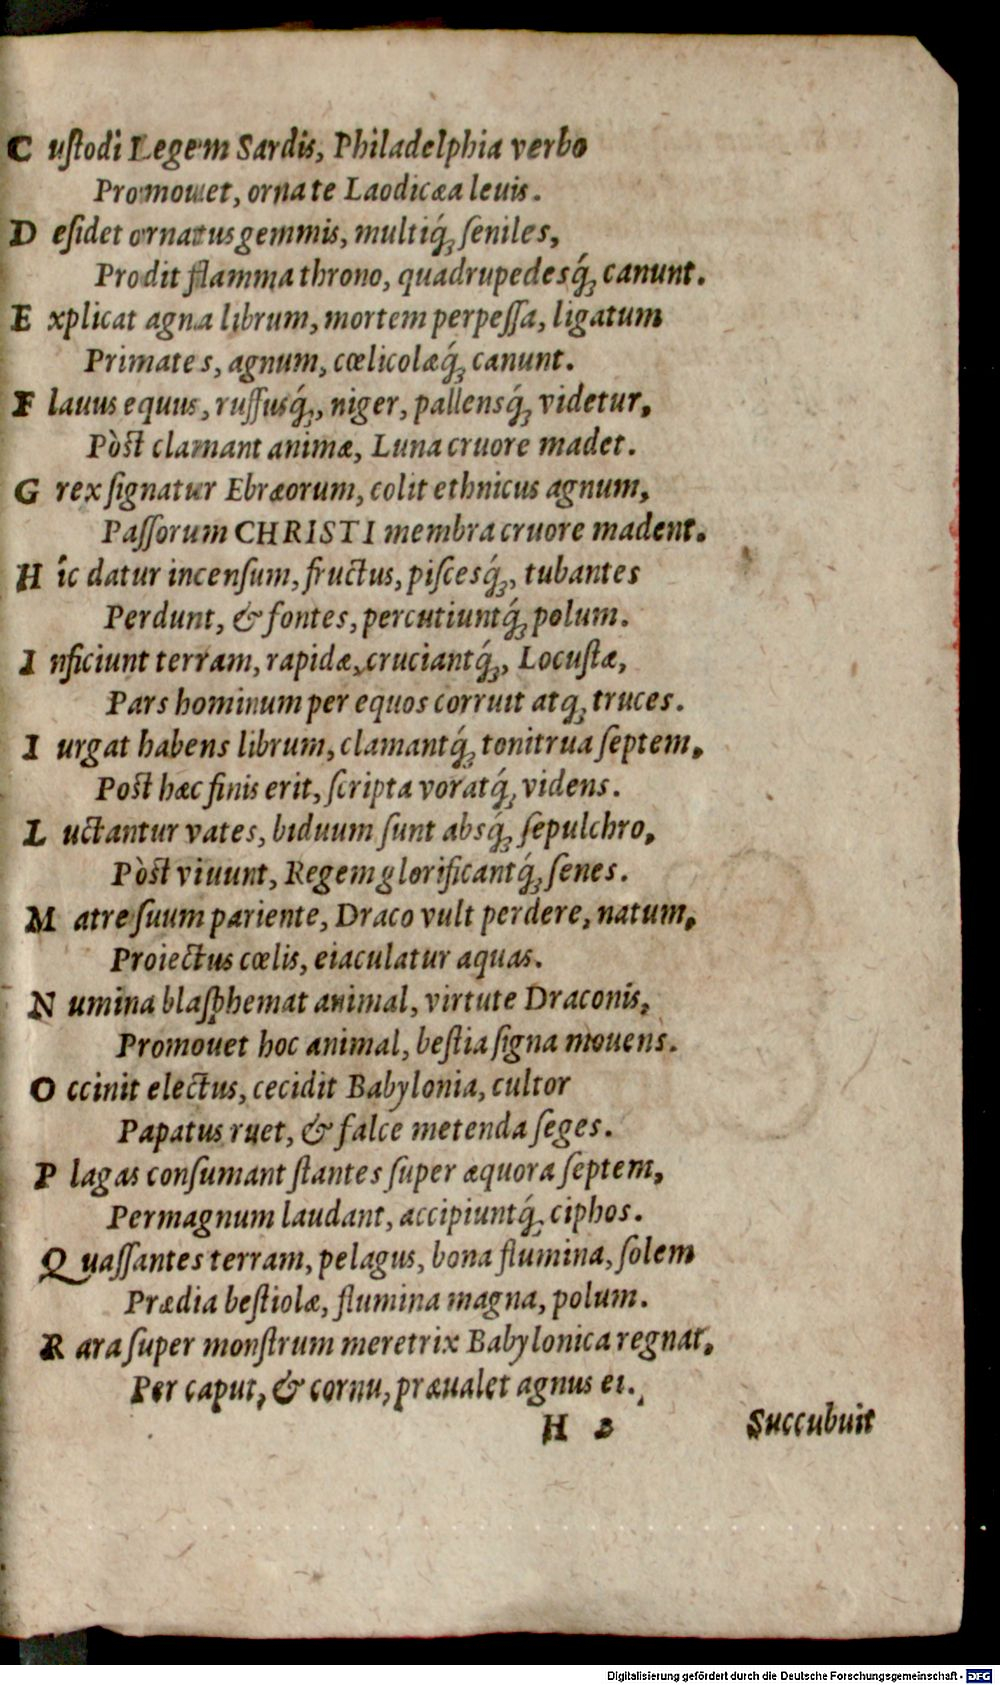 C uſtodi Legem Sardis, Philadelphia verbo
Promouet, ornate Laodicæa leuis.
D eſidet ornatus gemmis, multiq́; ſeniles,
Prodit flamma throno, quadrupedesq́; canunt.
E xplicat agna librum, mortem perpeſſa, ligatum
Primates, agnum, cœlicolæq́; canunt.
F lauus equus, ruffusq́;, niger, pallensq́; videtur,
Pòst clamant animæ, Luna cruore madet.
G rex ſignatur Ebræorum, colit ethnicus agnum,
Paſſorum CHRISTI membra cruore madent.
H îc datur incenſum, fructus, piſcesq́;, tubantes
Perdunt, & fontes, percutiuntq́; polum.
I nficiunt terram, rapidæ, cruciantq́;, Locuſtæ,
Pars hominum per equos corruit atq; truces.
I urgat habens librum, clamantq́; tonitrua ſeptem,
Post hæc finis erit, ſcripta voratq́; videns.
L uctantur vates, biduum ſunt absq́; ſepulchro,
Pòst viuunt, Regem glorificantq́; ſenes.
M atre ſuum pariente, Draco vult perdere, natum,
Proiectus cœlis, eiaculatur aquas.
N umina blaſphemat animal, virtute Draconis,
Promouet hoc animal, beſtia ſigna mouens.
O ccinit electus, cecidit Babylonia, cultor
Papatus ruet, & falce metenda ſeges.
P lagas conſumant ſtantes ſuper æquora ſeptem,
Permagnum laudant, accipiuntq́; ciphos.
Q uaſſantes terram, pelagus, bona flumina, ſolem
Prædia beſtiolæ, flumina magna, polum.
R ara ſuper monſtrum meretrix Babylonica regnat,
Per caput, & cornu, præualet agnus ei.
H 3 Succubuit
Digitalisierung gefördert durch die Deutsche Forschungsgemeinschaft - DFG